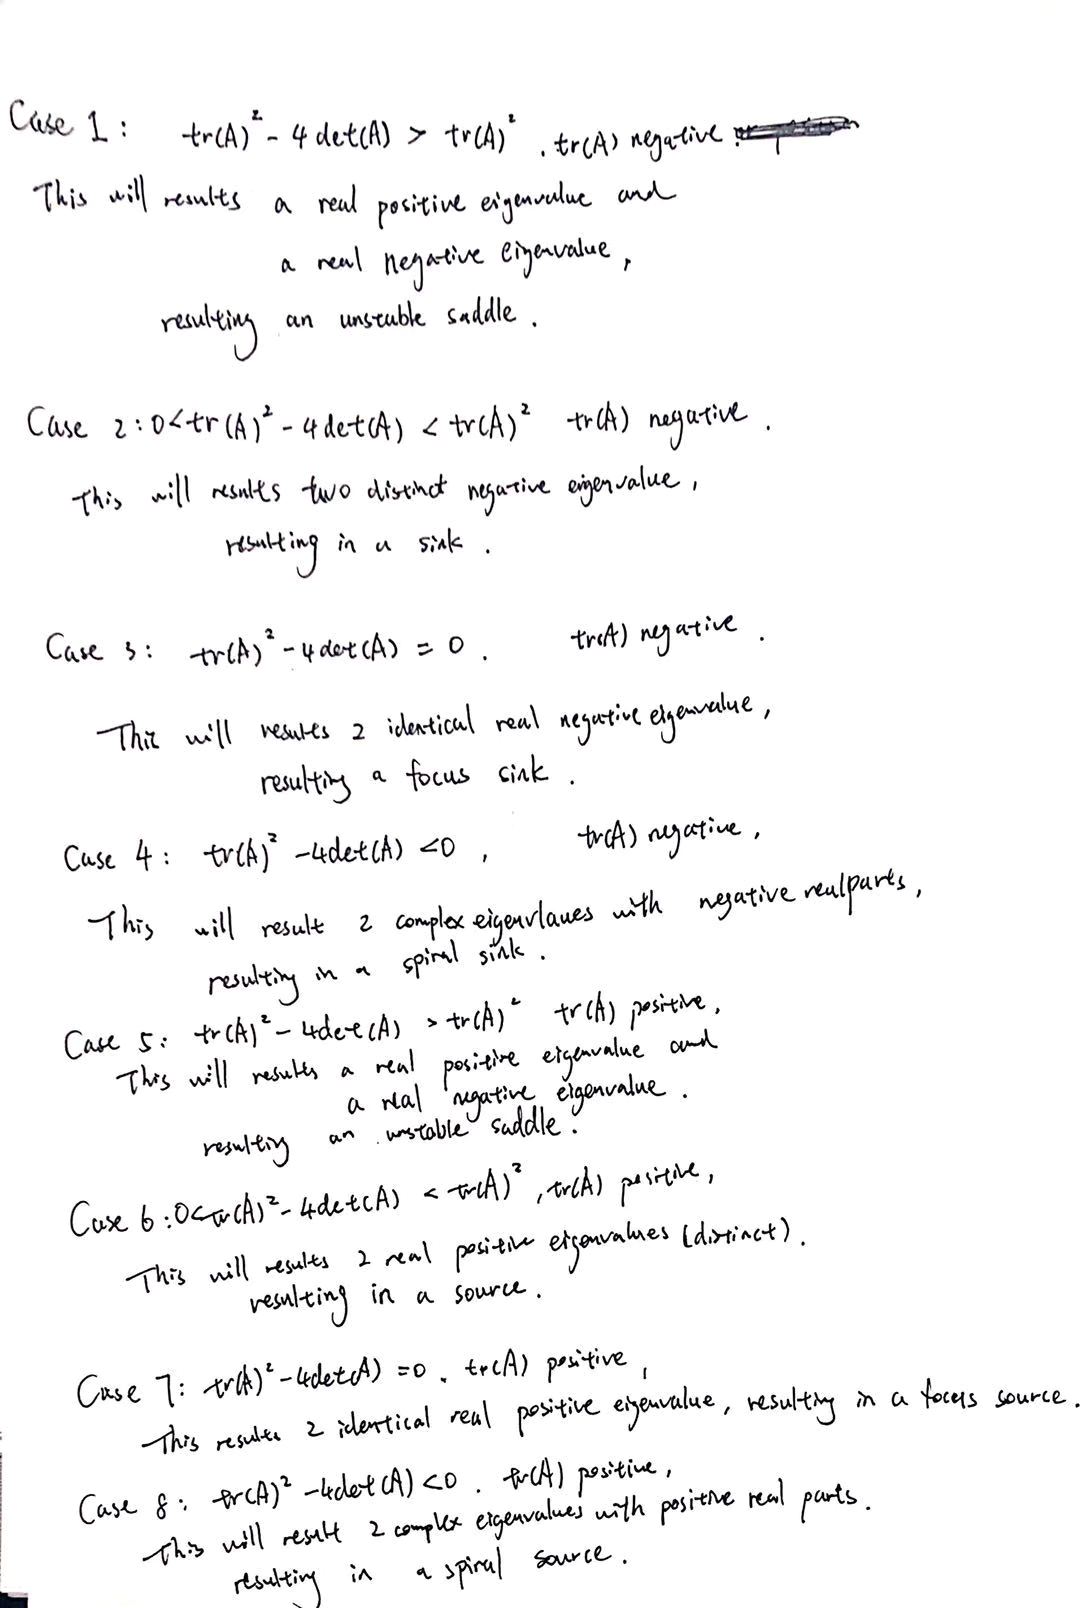 Case 1: tr(A)² - 4det(A) > tr(A)². tr(A) negative.
This will results a real positive eigenvalue and
a real negative eigenvalue,
resulting an unstable saddle.
Case 2: 0<tr(A)² - 4det(A) < tr(A)² tr(A) negative.
This will results two distinct negative eigenvalue,
resulting in a sink.
Case 3: tr(A)² - 4det(A) = 0. tr(A) negative.
This will results 2 identical real negative eigenvalue,
resulting a focus sink.
Case 4: tr(A)² - 4det(A) <0, tr(A) negative,
This will result 2 complex eigenvlaues with negative real parts,
resulting in a spiral sink.
Case 5: tr(A)² - 4det(A) > tr(A)² tr(A) positive,
This will results a real positive eigenvalue and
a real negative eigenvalue.
resulting an unstable saddle.
Case 6: 0<tr(A)² - 4det(A) < tr(A)², tr(A) positive,
This will results 2 real positive eigenvalues (distinct).
resulting in a source.
Case 7: tr(A)² - 4det(A) =0. tr(A) positive,
This results 2 identical real positive eigenvalue, resulting in a focus source.
Case 8: tr(A)² - 4det(A) <0. tr(A) positive,
This will result 2 complex eigenvalues with positive real parts.
resulting in a spiral source.